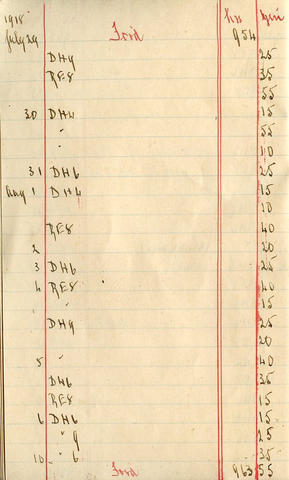 1918 hrs min
July 29 Ford 954
DH9 25
RE8 35
55
30 DH4 15
" 55
" 10
31 DH6 25
Aug 1 DH4 15
10
RE8 40
2 20
3 DH6 25
4 RE8 40
" 15
DH9 25
20
5 " 40
DH6 35
RE8 15
6 DH6 15
" 9 25
10 " 6 35
Ford 963 55